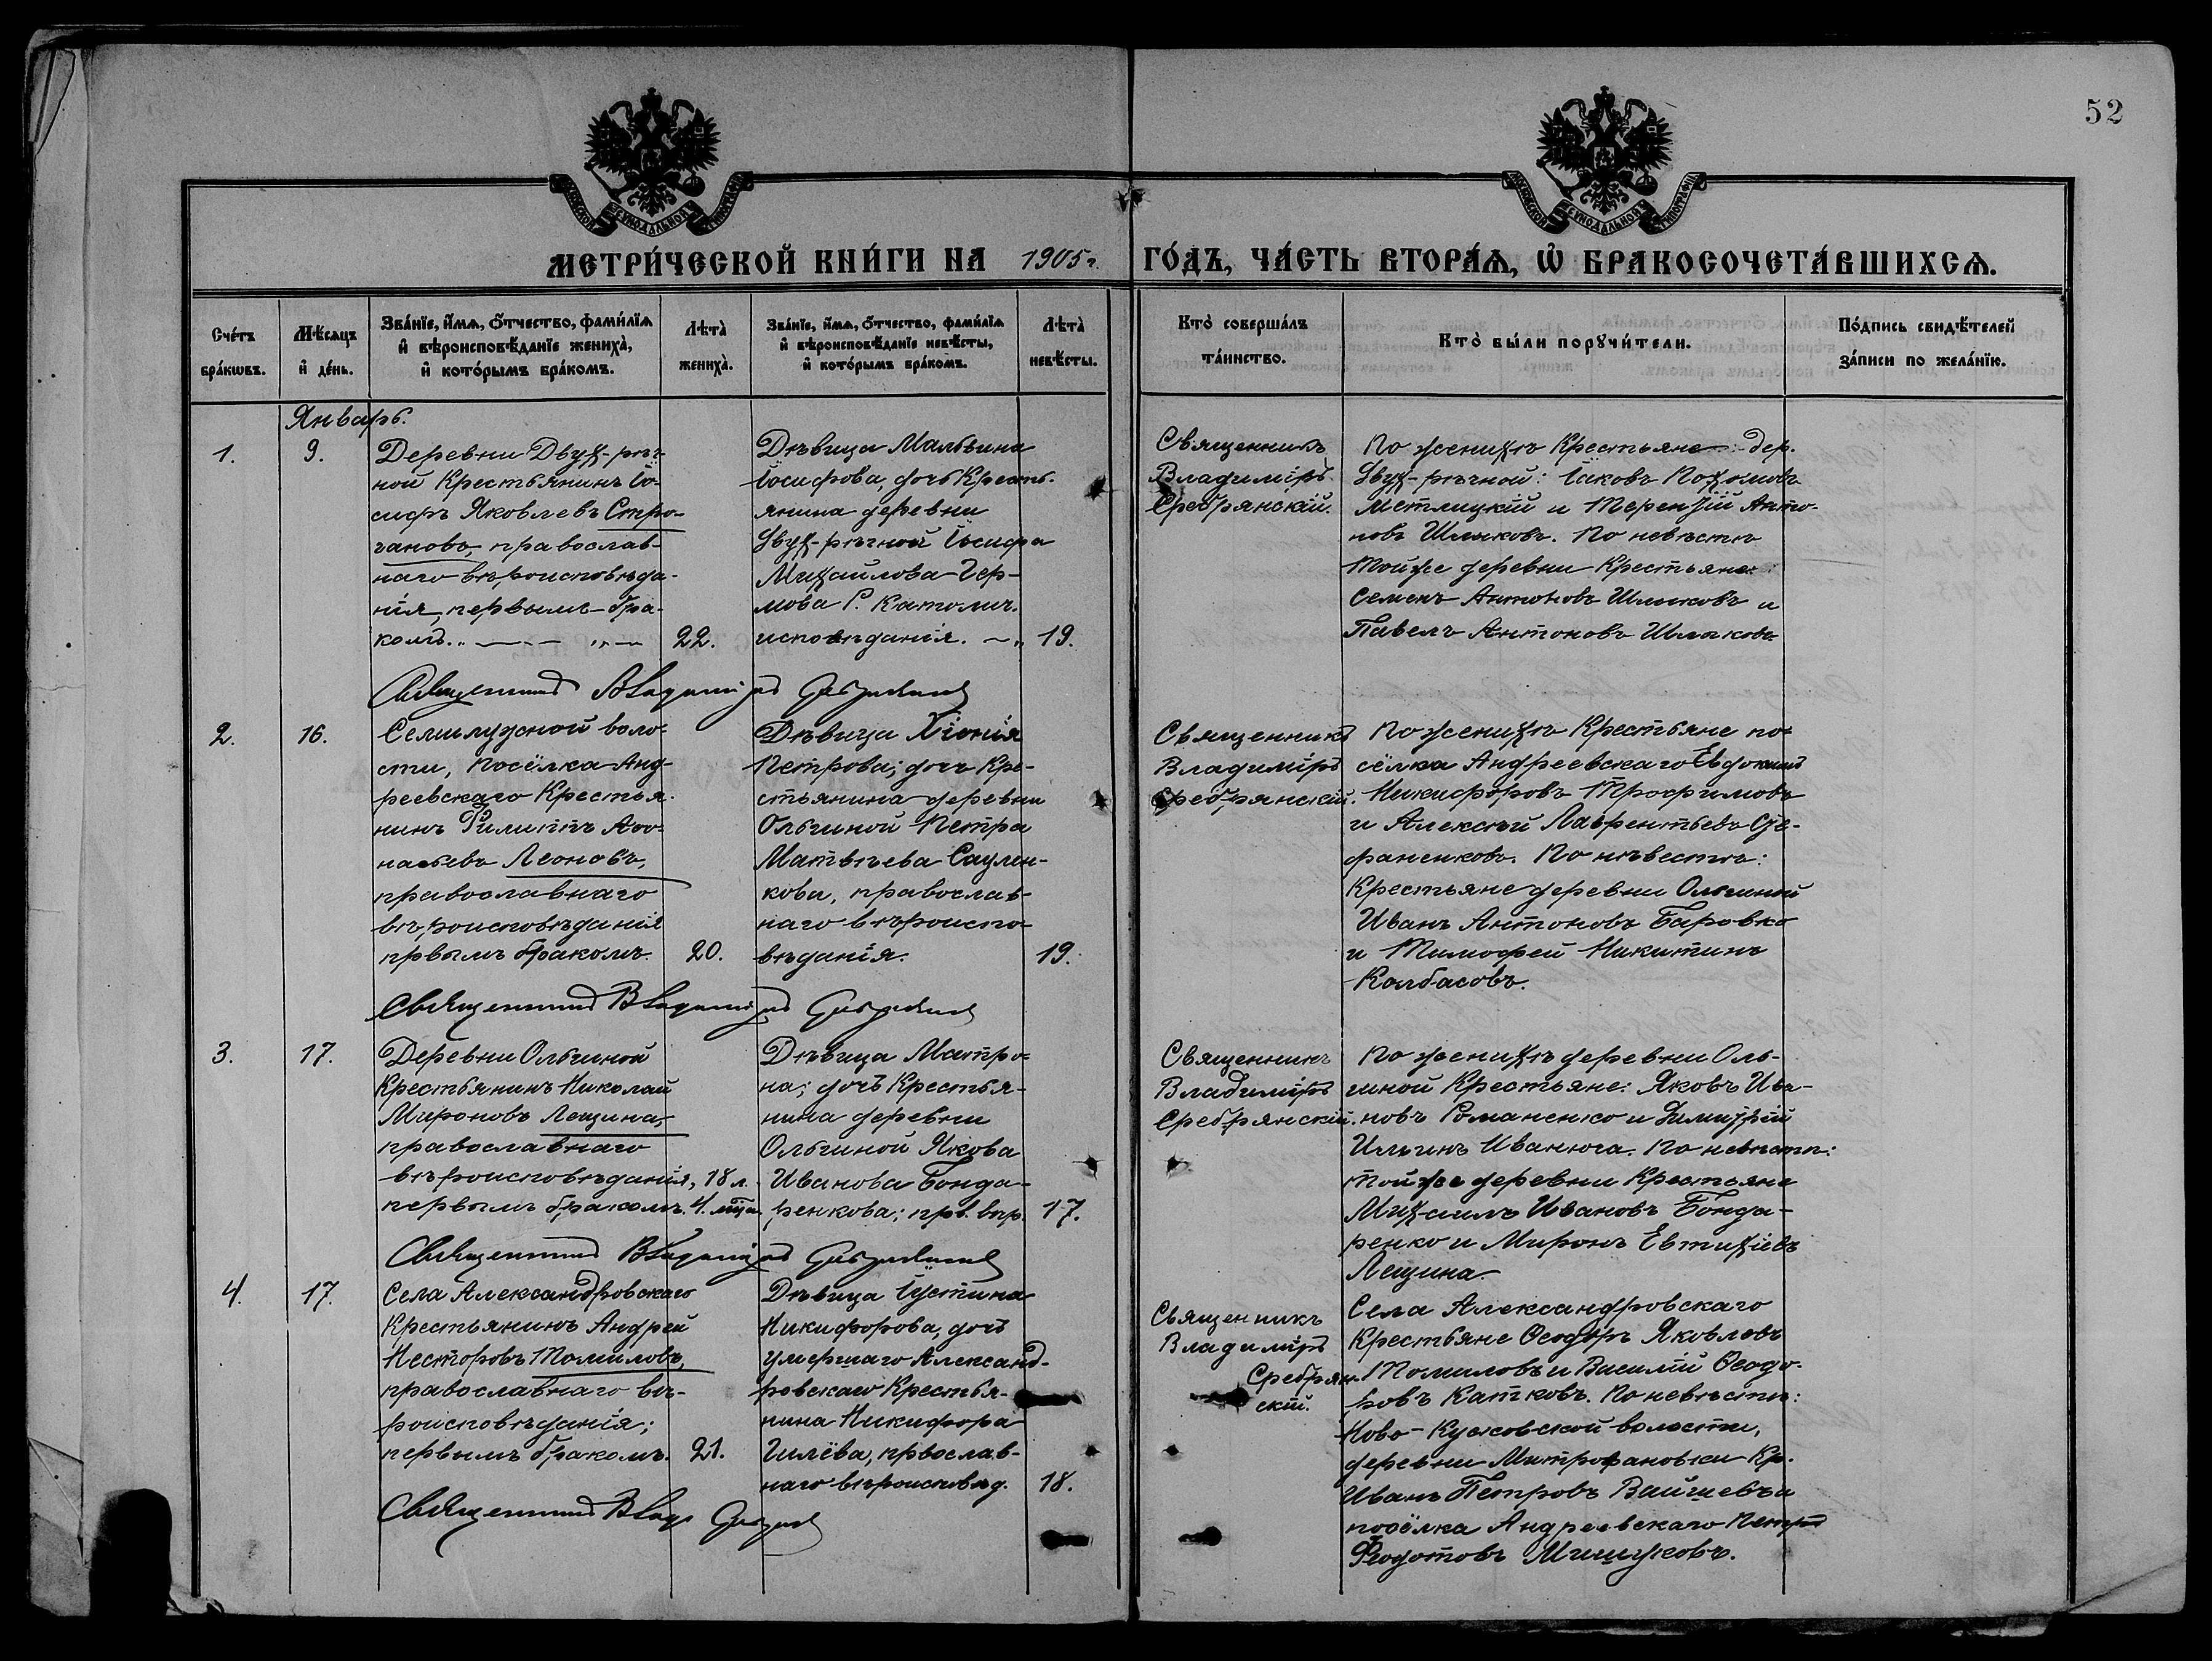 52
МОСКОВСКОЙ СѴНОДАЛЬНОЙ ТИПОГРАФІИ
МОСКОВСКОЙ СѴНОДАЛЬНОЙ ТИПОГРАФІИ
МЕТРИ́ЧЕСКОЙ КНИ́ГИ НА 1905 г. ГО́ДЪ, ЧА́СТЬ ВТОРА́Ѧ, Ѽ БРАКОСОЧЕТА́ВШИХСѦ.
Сче́тъ бра́кѡвъ.
Мѣ́сѧцъ и҆ де́нь.
Зва́нїе, и҆́мѧ, ѻ҆́тчество, фами́лїѧ
и҆ вѣроисповѣ́данїе жениха̀,
и҆ кото́рымъ бра́комъ.
Лѣта̀ жениха̀.
Зва́нїе, и҆́мѧ, ѻ҆́тчество, фами́лїѧ
и҆ вѣроисповѣ́данїе невѣ́сты,
и҆ кото́рымъ бра́комъ.
Лѣта̀ невѣ́сты.
Кто̀ соверша́лъ
та́инство.
Кто̀ бы́ли порꙋчи́тели.
По́дпись свидѣ́телей
за́писи по жела́нїю.
Январь.
1.
9.
Деревни Двух-рѣч-
ной Крестьянинъ Іо-
сифъ Яковлевъ Стро-
гановъ, православ-
наго вѣроисповѣда-
нія, первымъ бра-
комъ.
22.
Дѣвица Мальвина
Іосифова, дочь Кресть-
янина деревни
Двух-рѣчной Іосифа
Михайлова Гер-
мова Р. Католич.
исповѣданія.
19.
Священникъ
Владиміръ
Сребрянскій.
По женихѣ Крестьяне дер.
Двух-рѣчной: Іаковъ Пахомовъ
Мстлицкій и Терентій Анто-
новъ Шлыковъ. По невѣстѣ
тойже деревни Крестьяне:
Семенъ Антоновъ Шлыковъ и
Павелъ Антоновъ Шлыковъ
Священникъ Владиміръ Сребрянскій
2.
16.
Семилужной воло-
сти, посёлка Анд-
реевскаго Крестья-
нинъ Филиппъ Аѳо-
насьевъ Леоновъ,
православнаго
вѣроисповѣданія
првымъ бракомъ.
20.
Дѣвица Хіонія
Петрова; дочь Кре-
стьянина деревни
Ольгиной Петра
Матвѣева Саулен-
кова, православ-
наго вѣроиспо-
вѣданія.
19.
Священникъ
Владиміръ
Сребрянскій.
По женихѣ Крестьяне по-
сёлка Андреевскаго Евдокимъ
Никифоровъ Трофимовъ
и Алексѣй Лаврентьевъ Сте-
фаненковъ. По нѣвестѣ:
Крестьяне деревни Ольгиной
Иванъ Антоновъ Баровко
и Тимофей Никитинъ
Колбасовъ.
Священникъ Владиміръ Сребрянскій
3.
17.
Деревни Ольгиной
Крестьянинъ Николай
Мироновъ Лещина,
православнаго
вѣроисповѣданія,
первымъ бракомъ.
18 л.
4. мѣца.
Дѣвица Матро-
на; дочь Крестья-
нина деревни
Ольгиной Якова
Иванова Бонда-
ренкова; прв. вѣр.
17.
Священникъ
Владиміръ
Сребрянскій.
По женихѣ деревни Оль-
гиной Крестьяне: Яковъ Ива-
новъ Романенко и Димитрій
Ильинъ Иванюга. По невѣстѣ:
тойже деревни Крестьяне
Михаилъ Ивановъ Бонда-
ренко и Миронъ Евтихіевъ
Лещина.
Священникъ Владиміръ Сребрянскій
4.
17.
Села Александровскаго
Крестьянинъ Андрей
Несторовъ Томиловъ,
православнаго вѣ-
роисповѣданія;
первымъ бракомъ.
21.
Дѣвица Іустина
Никифорова, дочь
умершаго Александ-
ровскаго Крестья-
нина Никифора
Гилёва, првослав-
наго вѣроисповѣд.
18.
Священникъ
Владиміръ
Сребрян-
скій.
Села Александровскаго
Крестьяне Ѳеодоръ Яковлевъ
Томиловъ и Василій Ѳеодо-
ровъ Катковъ. По невѣстѣ:
Ново-Кусковской волости,
деревни Митрофановки Кр.
Иванъ Петровъ Вайшевъ и
посёлка Андреевскаго Петръ
Ѳедотовъ Мишуковъ.
Священникъ Влад Сребрянскій